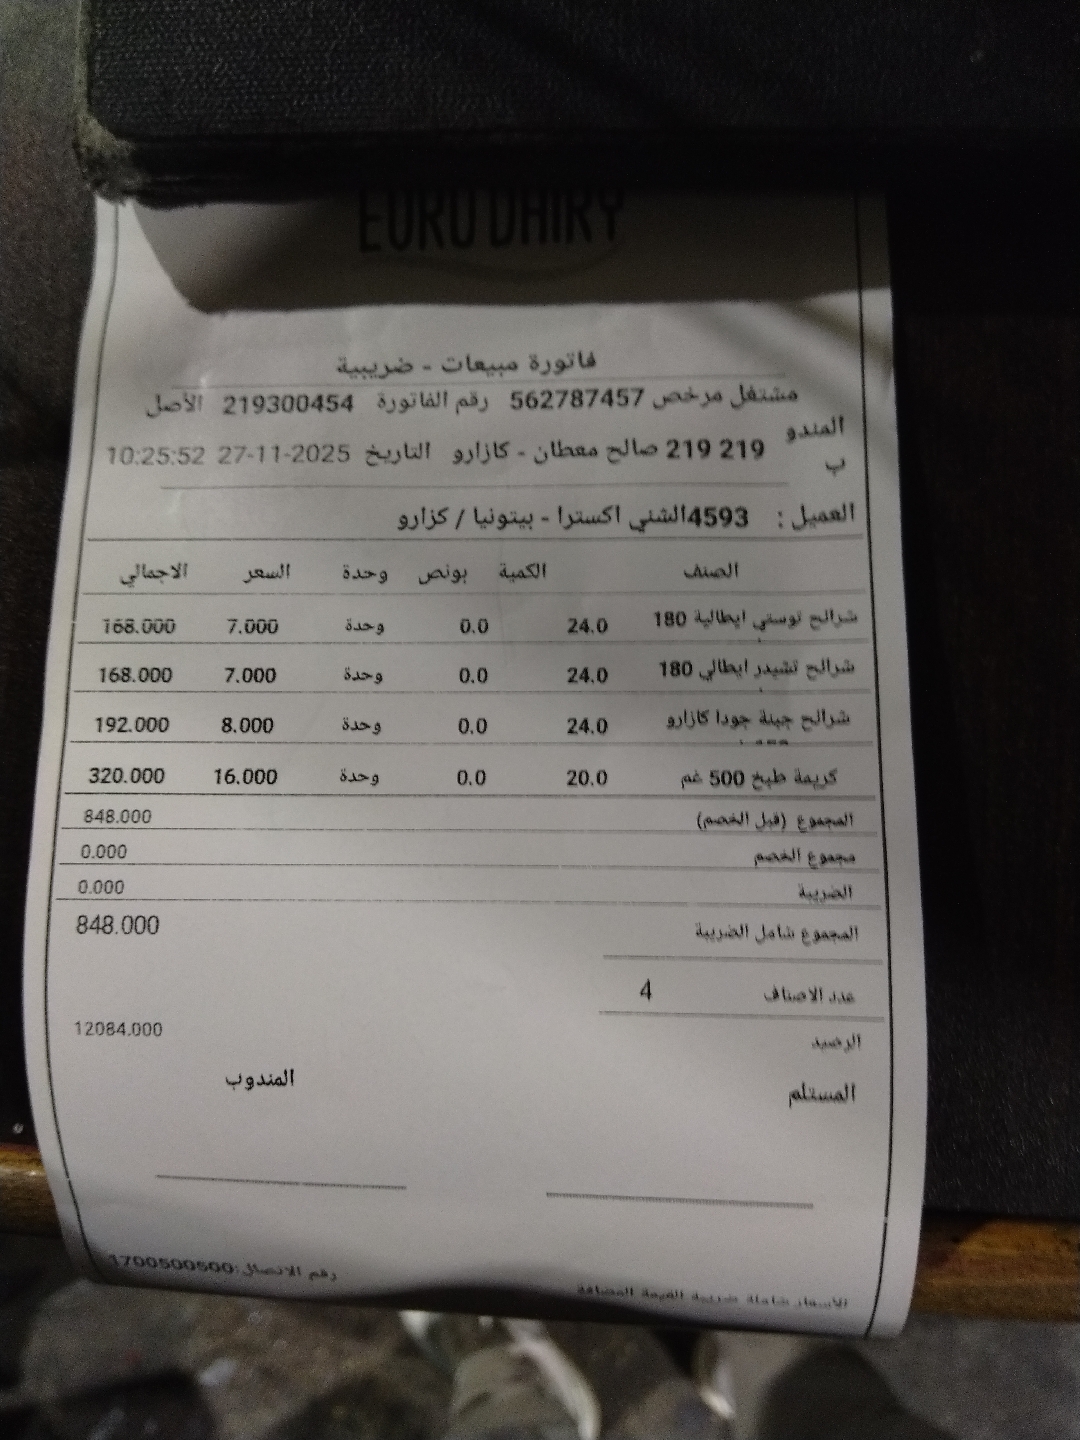 EURO DAIRY
فاتورة مبيعات - ضريبية
مشتغل مرخص 562787457 رقم الفاتورة 219300454 الأصل
المندوب 219 219 صالح معطان - كازارو التاريخ 27-11-2025 10:25:52
العميل : 4593الشني اكسترا - بيتونيا / كزارو
الصنف الكمية بونص وحدة السعر الاجمالي
شرائح توستي ايطالية 180 24.0 0.0 وحدة 7.000 168.000
شرائح تشيدر ايطالي 180 24.0 0.0 وحدة 7.000 168.000
شرائح جبنة جودا كازارو 24.0 0.0 وحدة 8.000 192.000
كريمة طبخ 500 غم 20.0 0.0 وحدة 16.000 320.000
المجموع (قبل الخصم) 848.000
مجموع الخصم 0.000
الضريبة 0.000
المجموع شامل الضريبة 848.000
عدد الاصناف 4
الرصيد 12084.000
المستلم المندوب
رقم الاتصال:1700500500
الاسعار شاملة ضريبة القيمة المضافة